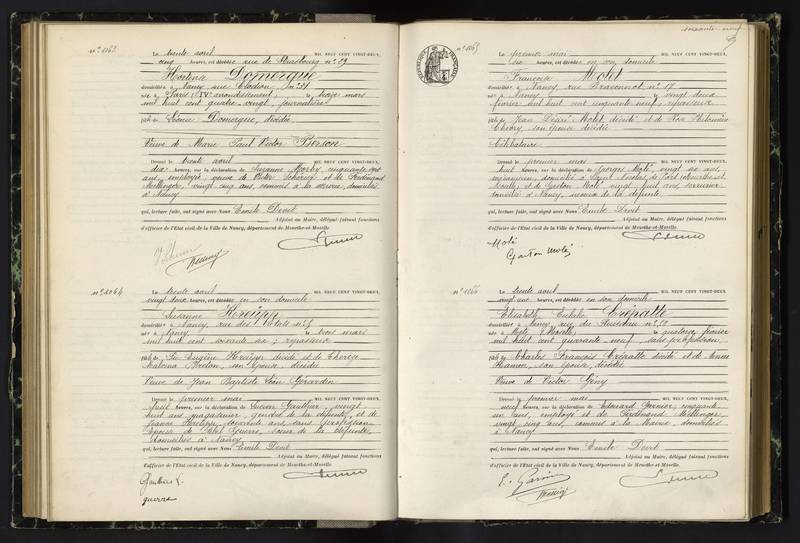 n° 1063
Le trente avril MIL NEUF CENT VINGT-DEUX,
cinq heures, est décédée rue de Strasbourg n° 59
Hortense Domergue
domiciliée à Nancy rue Clodion n° 31
née à Paris (IV° arrondissement), le treize mars
mil huit cent quatre-vingt, journalière
Léonie Domergue, décédée
Veuve de Marie Paul Victor Berson
Dressé le trente avril MIL NEUF CENT VINGT-DEUX,
dix heures, sur la déclaration de Suzanne cinquante sept
ans, employée, veuve de Victor et de Ferdinand
Mellinger, vingt cinq ans, commis à la mairie, domiciliés
à Nancy
qui, lecture faite, ont signé avec Nous Emile Droit
Adjoint au Maire, délégué faisant fonctions
d'officier de l'Etat civil de la Ville de Nancy, département de Meurthe-et-Moselle.
n° 1064
Le trente avril MIL NEUF CENT VINGT-DEUX,
vingt deux heures, est décédée en son domicile
Suzanne
domiciliée à Nancy, rue des Etats n° 5
née à Nancy le trois mars
mil huit cent soixante six ; repasseuse
décédé et de Thérèse
son épouse, décédée
Veuve de Jean Baptiste Léon Gérardin
Dressé le premier mai MIL NEUF CENT VINGT-DEUX,
huit heures, sur la déclaration de Lucien Gauthier, vingt
huit ans, magasinier, gendre de la défunte, et de
soixante ans, sans profession
épouse de Guerre, soeur de la défunte,
domiciliés à Nancy
qui, lecture faite, ont signé avec Nous Emile Droit
Adjoint au Maire, délégué faisant fonctions
d'officier de l'Etat civil de la Ville de Nancy, département de Meurthe-et-Moselle.
Gauthier L.
guerre
soixante neuf
n° 1065
RÉPUBLIQUE FRANÇAISE
Le premier mai MIL NEUF CENT VINGT-DEUX,
six heures, est décédée en son domicile
Françoise Molet
domiciliée à Nancy, rue Braconnot n° 17
née à Nancy le vingt deux
février mil huit cent cinquante neuf, repasseuse
Jean Désiré Molet décédé et de Rose Philomène
Chevry, son épouse décédée
Célibataire
Dressé le premier mai MIL NEUF CENT VINGT-DEUX,
huit heures, sur la déclaration de Georges Molé, vingt six ans,
mécanicien, domicilié à Saint Nicolas de Port (Meurthe et
Moselle) et de Gaston Molé, vingt huit ans, serrurier
domicilié à Nancy, neveux de la défunte
qui, lecture faite, ont signé avec Nous Emile Droit
Adjoint au Maire, délégué faisant fonctions
d'officier de l'Etat civil de la Ville de Nancy, département de Meurthe-et-Moselle.
Molé
Gaston Molé
n° 1066
Le trente avril MIL NEUF CENT VINGT-DEUX,
vingt une heures, est décédée en son domicile
Elisabeth Eulalie Crépatte
domiciliée à Nancy rue du Ruisseau n° 10
née à Metz (Moselle) le quatorze février
mil huit cent quarante neuf, sans profession
Charles François Crépatte décédé et de
Hanion, son épouse, décédée
Veuve de Victor Gény
Dressé le premier mai MIL NEUF CENT VINGT-DEUX,
neuf heures, sur la déclaration de Edouard Garnier, cinquante
un ans, employé et de Ferdinand Mellinger,
vingt cinq ans, commis à la Mairie, domiciliés
à Nancy
qui, lecture faite, ont signé avec Nous Emile Droit
Adjoint au Maire, délégué faisant fonctions
d'officier de l'Etat civil de la Ville de Nancy, département de Meurthe-et-Moselle.
E. Garnier